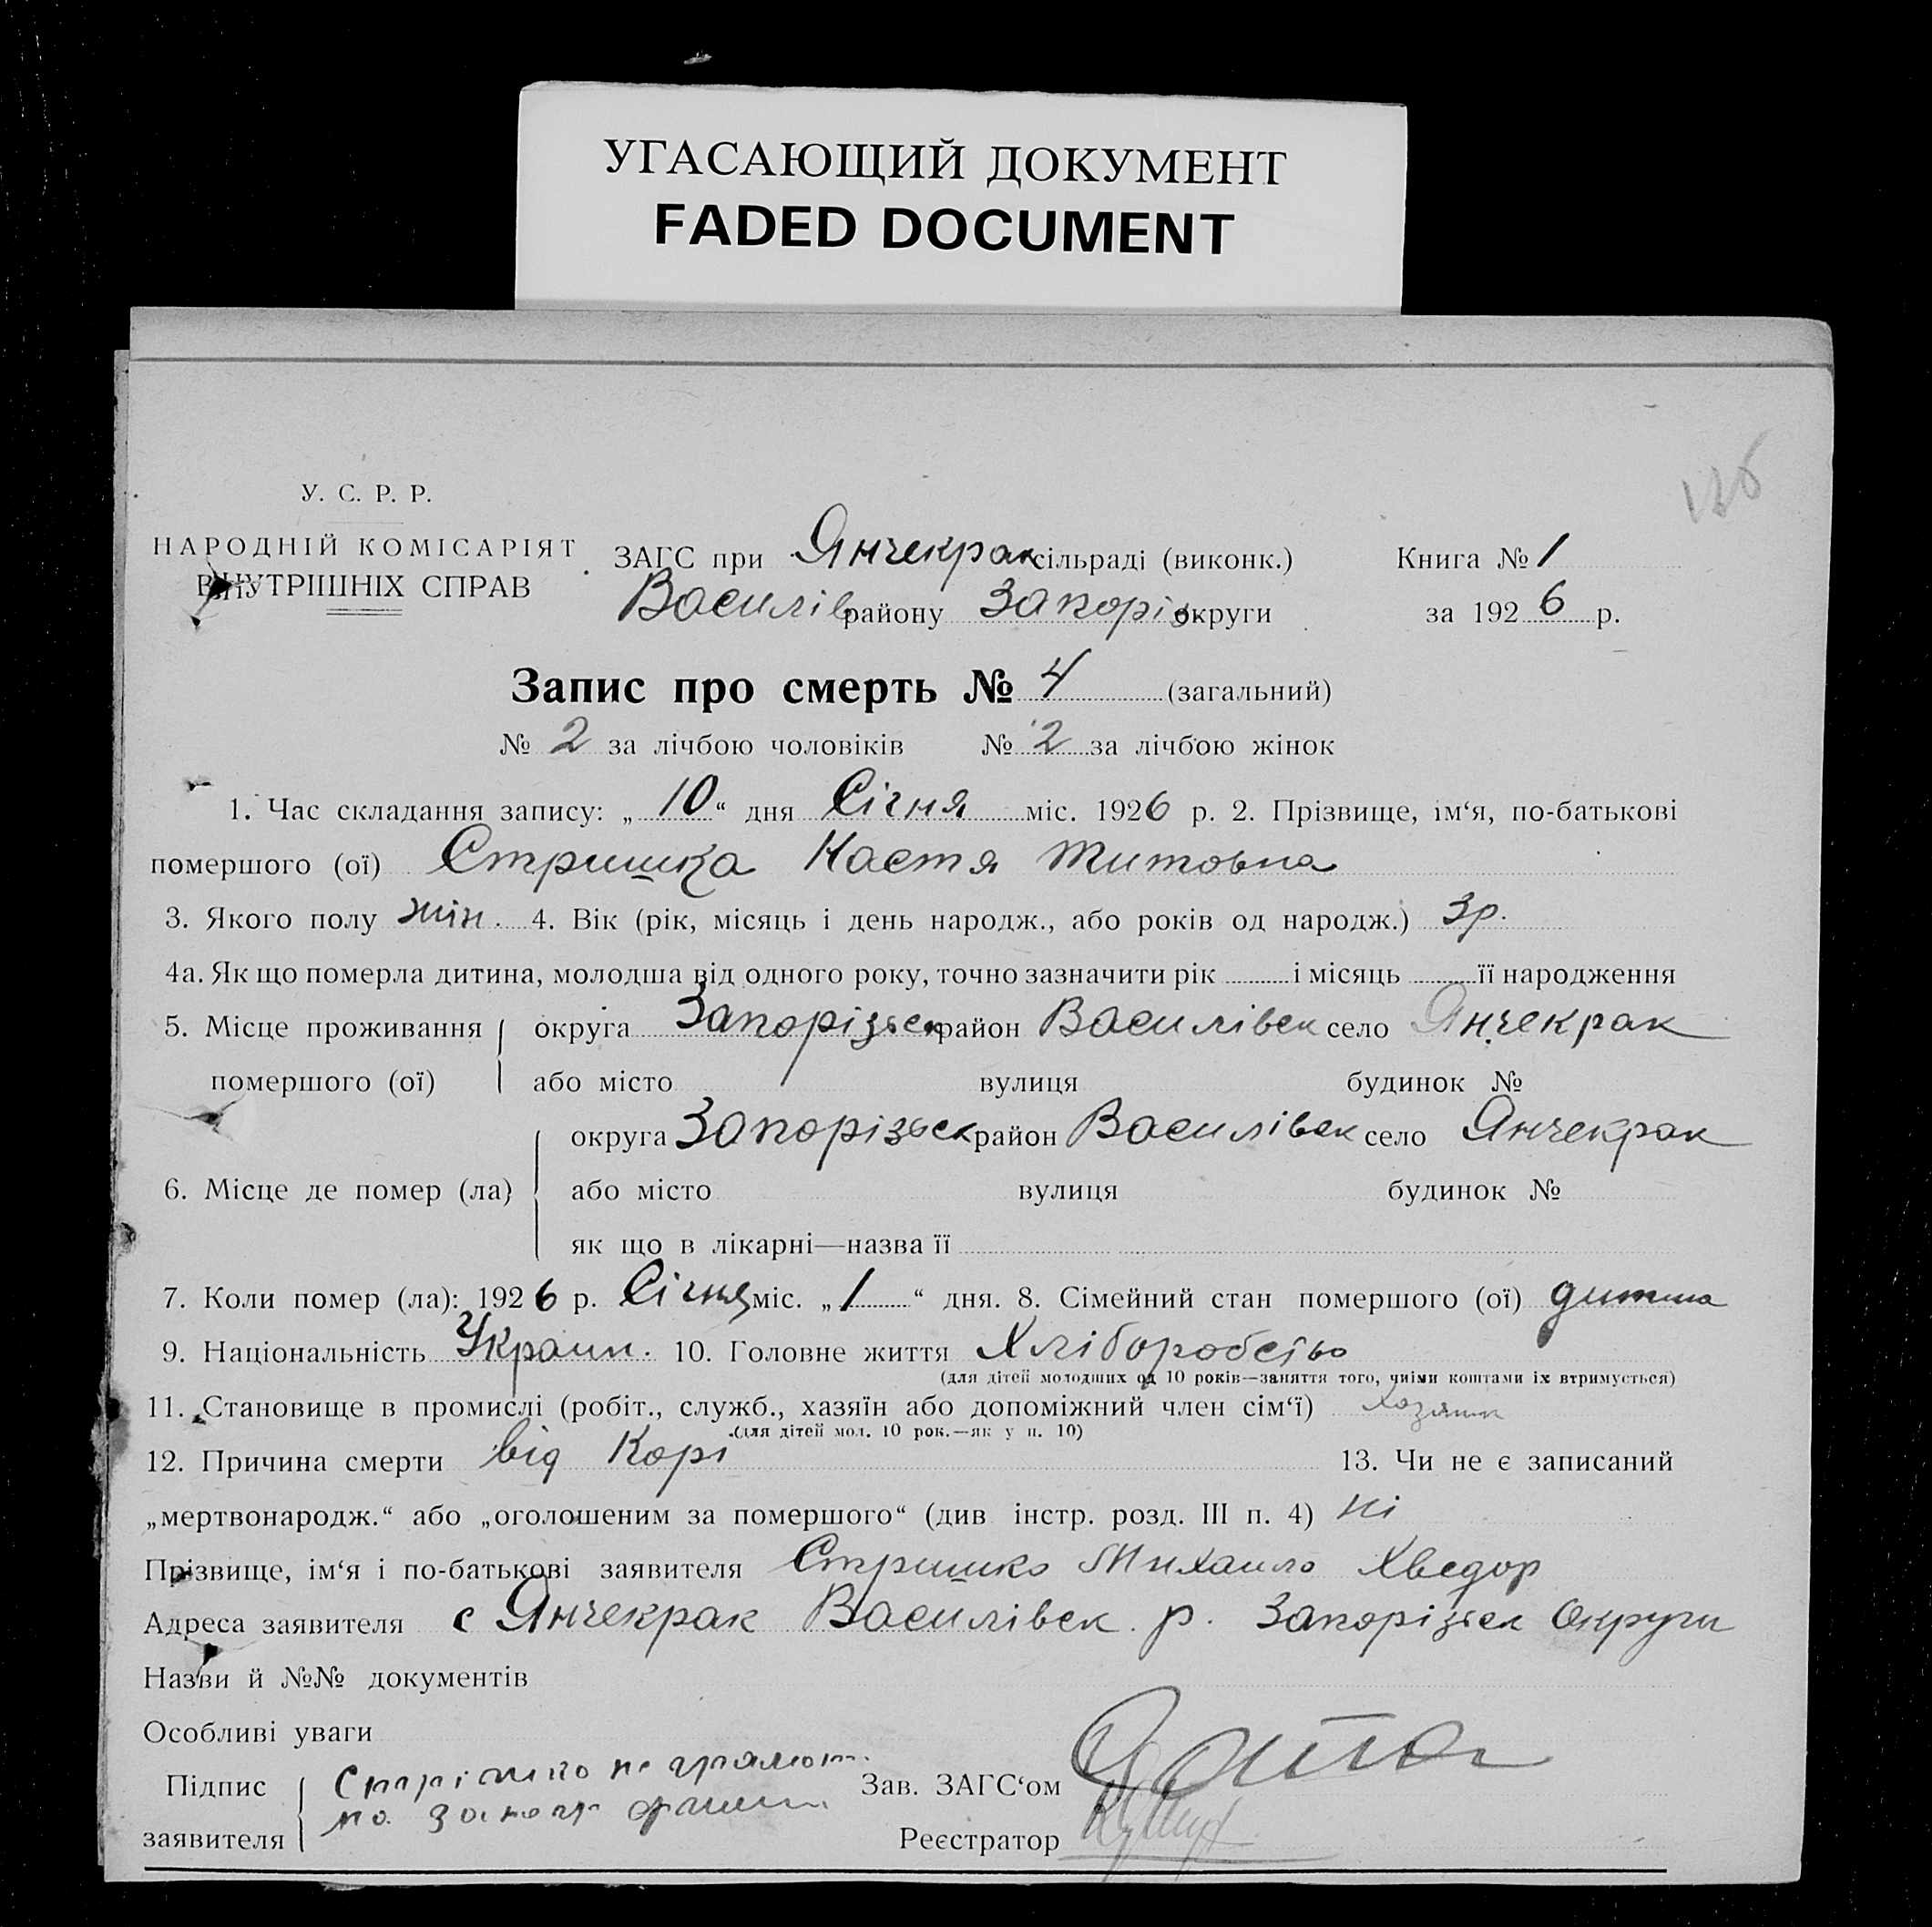 УГАСАЮЩИЙ ДОКУМЕНТ
FADED DOCUMENT
136
У. С. Р. Р.
НАРОДНІЙ КОМІСАРІЯТ
ВНУТРІШНІХ СПРАВ
ЗАГС при Янчекрак сільраді (виконк.) Книга № 1
Василів району Запоріз округи за 1926 р.
Запис про смерть № 4 (загальний)
№ 2 за лічбою чоловіків № 2 за лічбою жінок
1. Час складання запису: „10“ дня Січня міс. 1926 р. 2. Прізвище, ім‘я, по-батькові
помершого (ої) Стришка Настя Титовна
3. Якого полу жін. 4. Вік (рік, місяць і день народж., або років од народж.) 3р.
4а. Як що померла дитина, молодша від одного року, точно зазначити рік і місяць її народження
5. Місце проживання округа Запорізьск район Василівск село Янчекрак
помершого (ої) або місто вулиця будинок №
округа Запорізьск район Василівск село Янчекрак
6. Місце де помер (ла) або місто вулиця будинок №
як що в лікарні—назва її
7. Коли помер (ла): 1926 р. Січня міс. „1“ дня. 8. Сімейний стан помершого (ої) дитина
9. Національність Украин. 10. Головне життя Хліборобство
(для дітей молодших од 10 років—заняття того, чиїми коштами їх втримується)
11. Становище в промислі (робіт., служб., хазяїн або допоміжний член сім‘ї) хозяин
(для дітей мол. 10 рок.—як у п. 10)
12. Причина смерти від Корі 13. Чи не є записаний
„мертвонародж.“ або „оголошеним за помершого“ (див інстр. розд. III п. 4) ні
Прізвище, ім‘я і по-батькові заявителя Стришко Михаило Хведор
Адреса заявителя с Янчекрак Василівск. р. Запорізьск Округи
Назви й №№ документів
Особливі уваги
Підпис Зав. ЗАГС‘ом
заявителя Реєстратор